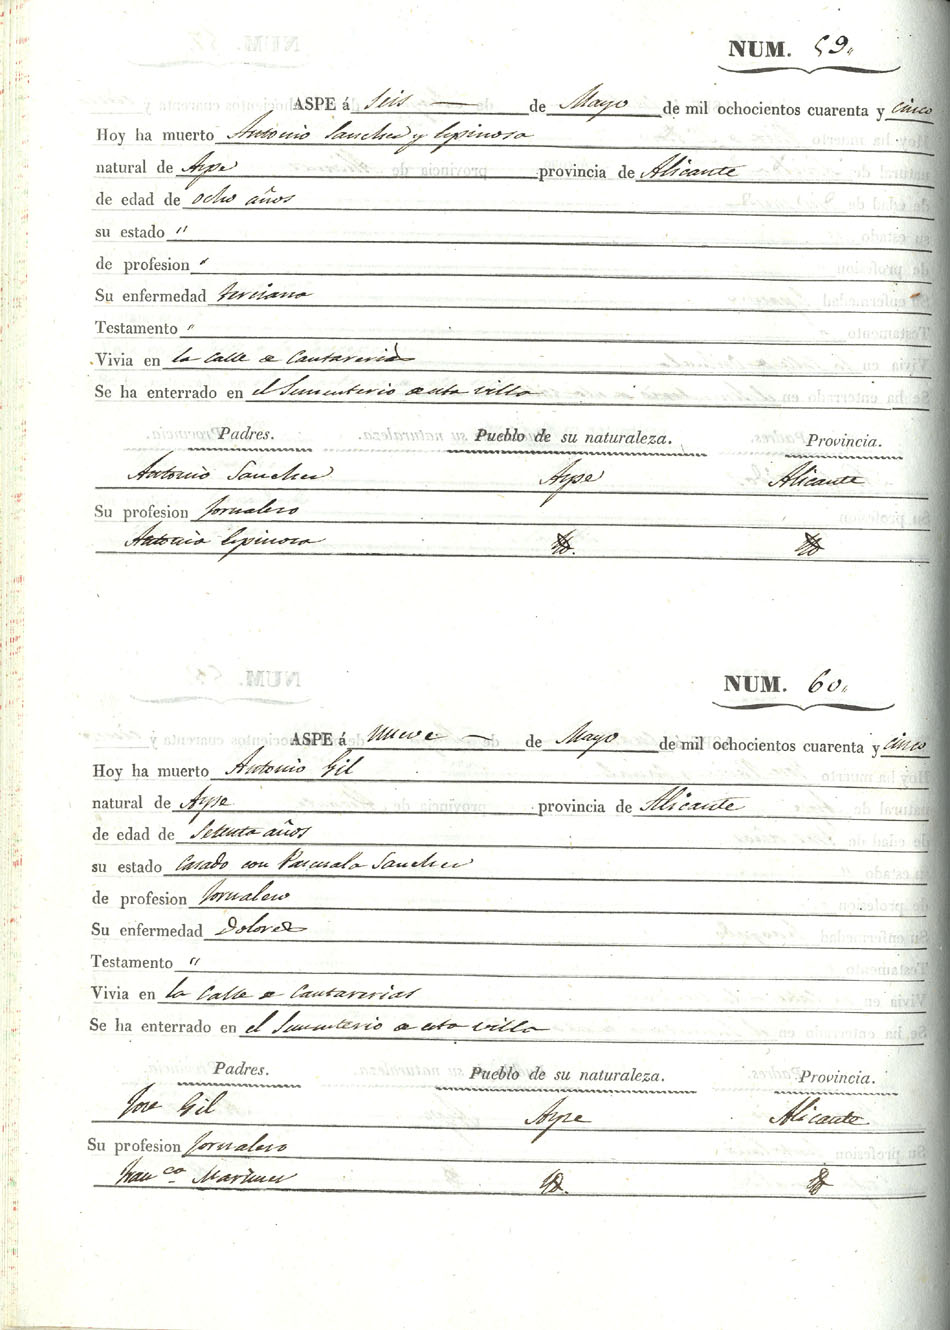 NUM. 59.
ASPE á seis de Mayo de mil ochocientos cuarenta y cinco
Hoy ha muerto Antonio Sanches y Espinosa
natural de Aspe provincia de Alicante
de edad de ocho años
su estado "
de profesion "
Su enfermedad terciana
Testamento "
Vivia en la calle de Cantarerias
Se ha enterrado en el Sementerio de esta villa
Padres. Pueblo de su naturaleza. Provincia.
Antonio Sanches Aspe Alicante
Su profesion Jornalero
Antonia Espinosa Yd. Yd.
NUM. 60.
ASPE á nueve de Mayo de mil ochocientos cuarenta y cinco
Hoy ha muerto Antonio Gil
natural de Aspe provincia de Alicante
de edad de setenta años
su estado Casado con Pascuala Sanches
de profesion Jornalero
Su enfermedad Dolores
Testamento "
Vivia en la Calle de Cantarerias
Se ha enterrado en el Sementerio de esta villa
Padres. Pueblo de su naturaleza. Provincia.
Jose Gil Aspe Alicante
Su profesion Jornalero
Franca Martines Yd. Yd.